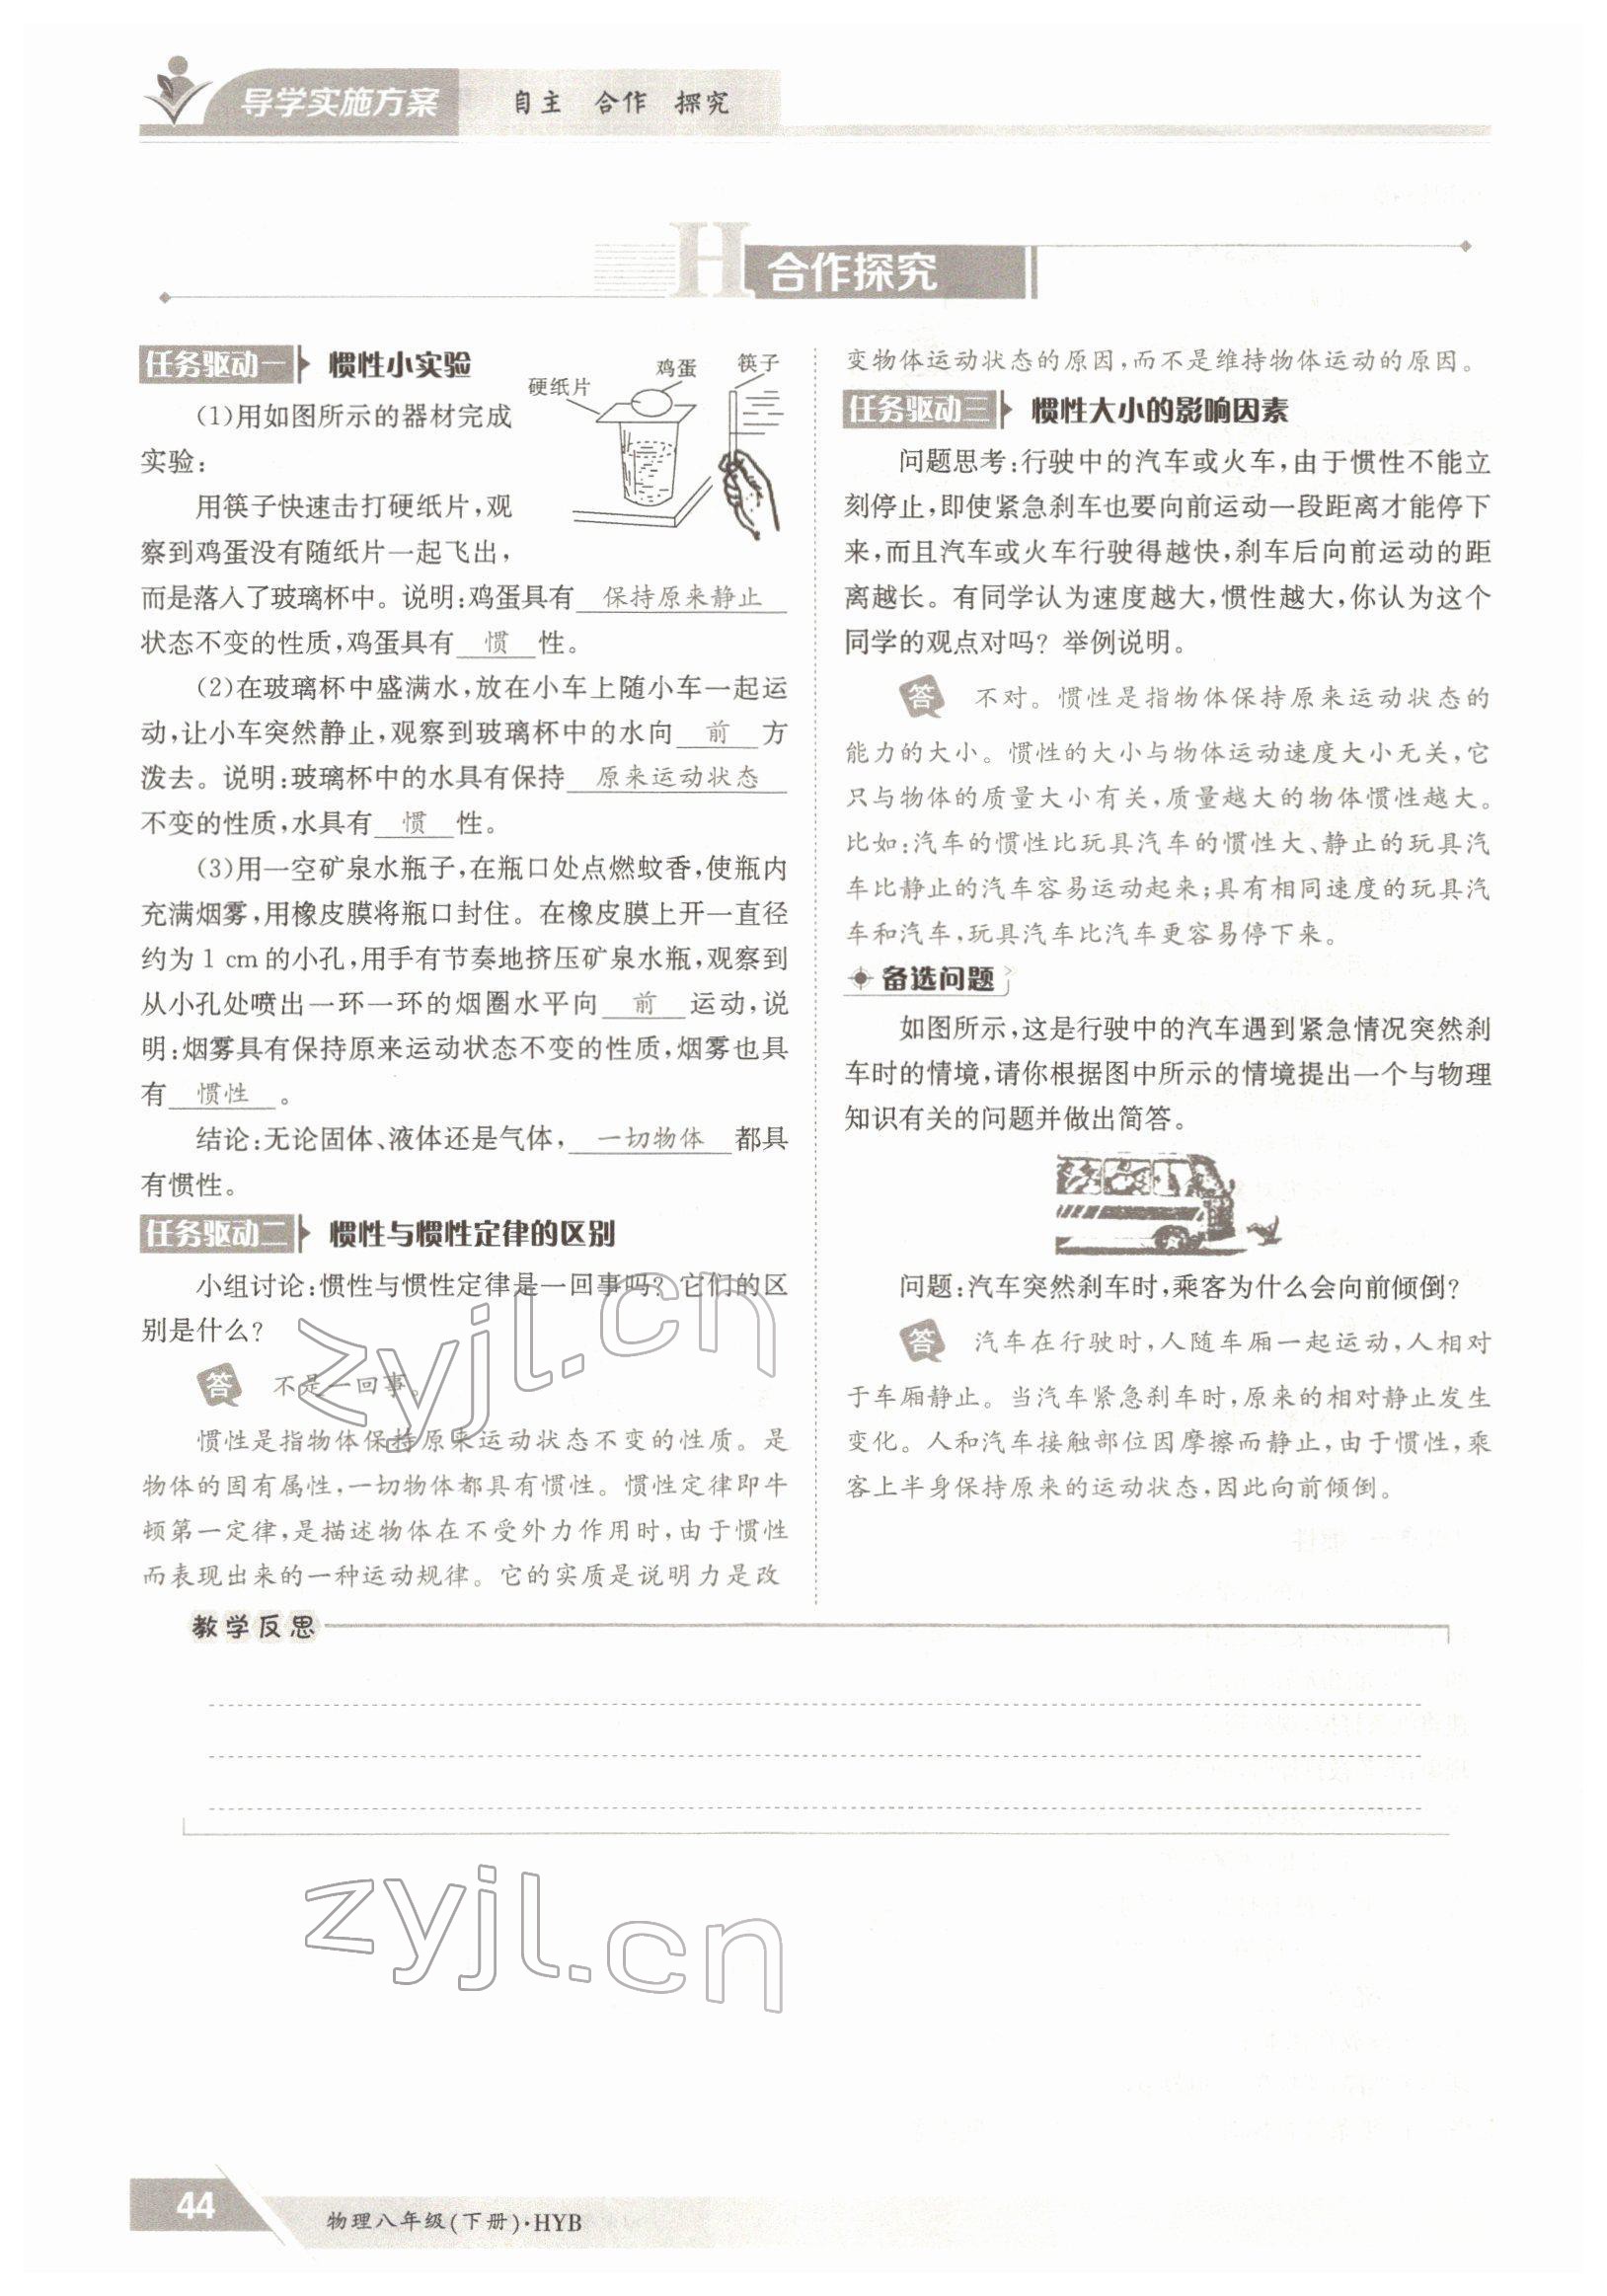 导学实施方案 自主 合作 探究
H 合作探究
任务驱动一 惯性小实验
硬纸片 鸡蛋 筷子
(1)用如图所示的器材完成
实验:
用筷子快速击打硬纸片,观
察到鸡蛋没有随纸片一起飞出,
而是落入了玻璃杯中。说明:鸡蛋具有 保持原来静止
状态不变的性质,鸡蛋具有 惯 性。
(2)在玻璃杯中盛满水,放在小车上随小车一起运
动,让小车突然静止,观察到玻璃杯中的水向 前 方
泼去。说明:玻璃杯中的水具有保持 原来运动状态
不变的性质,水具有 惯 性。
(3)用一空矿泉水瓶子,在瓶口处点燃蚊香,使瓶内
充满烟雾,用橡皮膜将瓶口封住。在橡皮膜上开一直径
约为 1 cm 的小孔,用手有节奏地挤压矿泉水瓶,观察到
从小孔处喷出一环一环的烟圈水平向 前 运动,说
明:烟雾具有保持原来运动状态不变的性质,烟雾也具
有 惯性 。
结论:无论固体、液体还是气体, 一切物体 都具
有惯性。
任务驱动二 惯性与惯性定律的区别
小组讨论:惯性与惯性定律是一回事吗?它们的区
别是什么?
答 不是一回事。
惯性是指物体保持原来运动状态不变的性质。是
物体的固有属性,一切物体都具有惯性。惯性定律即牛
顿第一定律,是描述物体在不受外力作用时,由于惯性
而表现出来的一种运动规律。它的实质是说明力是改
变物体运动状态的原因,而不是维持物体运动的原因。
任务驱动三 惯性大小的影响因素
问题思考:行驶中的汽车或火车,由于惯性不能立
刻停止,即使紧急刹车也要向前运动一段距离才能停下
来,而且汽车或火车行驶得越快,刹车后向前运动的距
离越长。有同学认为速度越大,惯性越大,你认为这个
同学的观点对吗?举例说明。
答 不对。惯性是指物体保持原来运动状态的
能力的大小。惯性的大小与物体运动速度大小无关,它
只与物体的质量大小有关,质量越大的物体惯性越大。
比如:汽车的惯性比玩具汽车的惯性大、静止的玩具汽
车比静止的汽车容易运动起来;具有相同速度的玩具汽
车和汽车,玩具汽车比汽车更容易停下来。
备选问题
如图所示,这是行驶中的汽车遇到紧急情况突然刹
车时的情境,请你根据图中所示的情境提出一个与物理
知识有关的问题并做出简答。
问题:汽车突然刹车时,乘客为什么会向前倾倒?
答 汽车在行驶时,人随车厢一起运动,人相对
于车厢静止。当汽车紧急刹车时,原来的相对静止发生
变化。人和汽车接触部位因摩擦而静止,由于惯性,乘
客上半身保持原来的运动状态,因此向前倾倒。
教学反思
zyjl.cn
zyjl.cn
44 物理八年级(下册)·HYB